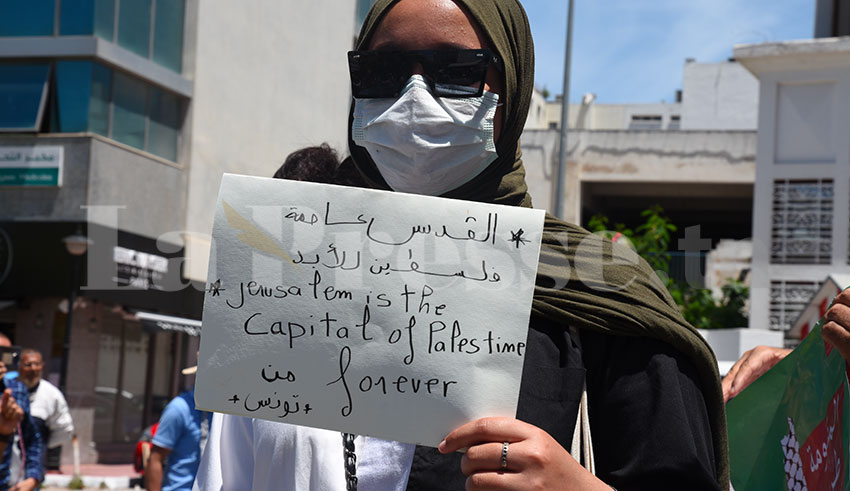 * القدس عاصمة
فلسطين للأبد
* Jerusalem is the
Capital of Palestime
forever
من
* تونس *
La Presse.tn